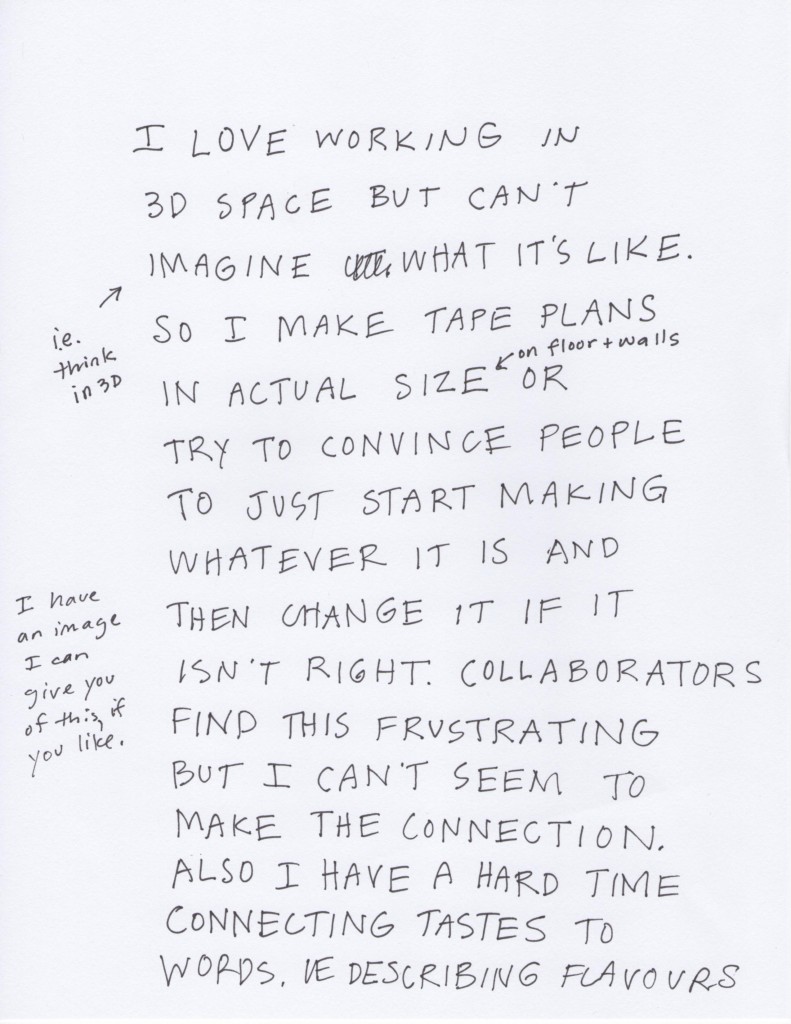 I LOVE WORKING IN
3D SPACE BUT CAN'T
IMAGINE WHAT IT'S LIKE.
i.e.
think
in 3D
SO I MAKE TAPE PLANS
on floor + walls
IN ACTUAL SIZE OR
TRY TO CONVINCE PEOPLE
TO JUST START MAKING
WHATEVER IT IS AND
THEN CHANGE IT IF IT
ISN'T RIGHT. COLLABORATORS
FIND THIS FRUSTRATING
BUT I CAN'T SEEM TO
MAKE THE CONNECTION.
ALSO I HAVE A HARD TIME
CONNECTING TASTES TO
WORDS. IE DESCRIBING FLAVOURS
I have
an image
I can
give you
of this, if
you like.